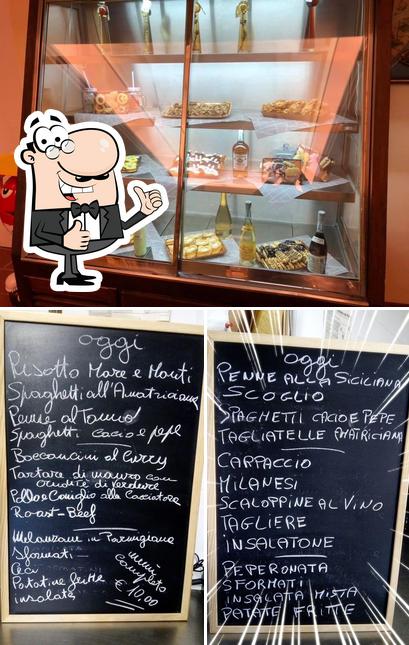 oggi
Risotto Mare e Monti
Spaghetti all'Amatriciana
Penne al Tonno
Spaghetti cacio e pepe
Bocconcini al Curry
Tartare di manzo con
crudité di verdure
Pollo e Coniglio alla Cacciatora
Roast-Beef
Melanzane in Parmigiana
Sformati
Ceci
Patatine fritte
insalata
menù
completo
€ 10,00
oggi
PENNE ALLA SICILIANA
SCOGLIO
SPAGHETTI CACIO E PEPE
TAGLIATELLE AMATRICIANA
CARPACCIO
MILANESI
SCALOPPINE AL VINO
TAGLIERE
INSALATONE
PEPERONATA
SFORMATI
INSALATA MISTA
PATATE FRITTE